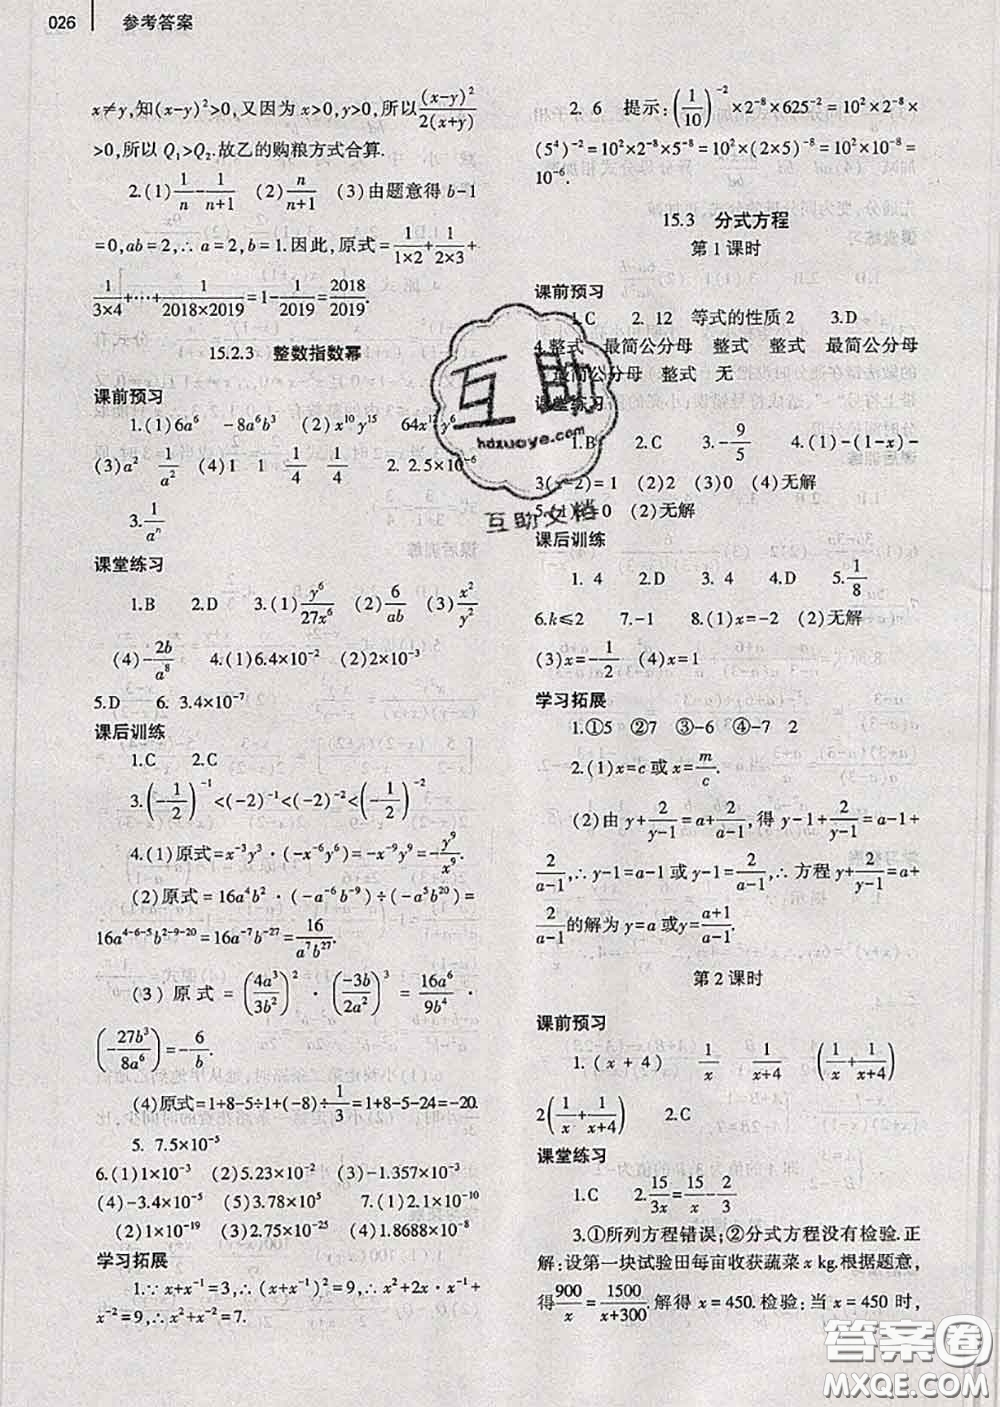 026 参考答案
x≠y,知(x-y)²>0,又因为 x>0,y>0,所以(x-y)²/2(x+y)
>0,所以 Q₁>Q₂.故乙的购粮方式合算.
2.(1)1/n-1/(n+1) (2)n/(n+1) (3)由题意得 b-1
=0,ab=2,∴a=2,b=1.因此,原式=1/(1×2)+1/(2×3)+
1/(3×4)+…+1/(2018×2019)=1-1/2019=2018/2019.
15.2.3 整数指数幂
课前预习
1.(1)6a⁶ -8a⁶b³ (2)x¹⁰y¹⁵ 64x¹²y⁶
(3)a² 1/a² (4)1 1 1/4 1/4 2. 2.5×10⁻⁶
3.1/aⁿ
课堂练习
1.B 2.D 3.(1)y⁶/27x⁶ (2)6/ab (3)x²/y²
(4)-2b/a⁸ 4.(1)6.4×10⁻² (2)2×10⁻³
5.D 6. 3.4×10⁻⁷
课后训练
1.C 2.C
3.(-1/2)⁻¹<(-2)⁻¹<(-2)⁻²<(-1/2)⁻²
4.(1)原式=x⁻³y³·(-x⁻⁶y⁶)=-x⁻⁹y⁹=-y⁹/x⁹.
(2)原式=16a⁴b²·(-a⁻⁶b⁻⁹)÷(-a⁵b²⁰)=
16a⁴⁻⁶⁻⁵b²⁻⁹⁻²⁰=16a⁻⁷b⁻²⁷=16/a⁷b²⁷.
(3)原式=(4a³/3b²)²·(-3b/2a²)³=16a⁶/9b⁴·
(-27b³/8a⁶)=-6/b.
(4)原式=1+8-5÷1+(-8)÷1/3=1+8-5-24=-20.
5. 7.5×10⁻⁵
6.(1)1×10⁻³ (2)5.23×10⁻² (3)-1.357×10⁻³
(4)-3.4×10⁻⁵ (5)3.78×10⁵ 7.(1)2.1×10⁻⁸
(2)1×10⁻¹⁹ (3)2.75×10⁻²⁵ (4)1.8688×10⁻⁸
学习拓展
1.∵x+x⁻¹=3,∴(x+x⁻¹)²=9,∴x²+2x·x⁻¹+
x⁻²=9,∴x²+x⁻²=7.
2. 6 提示:(1/10)⁻²×2⁻⁸×625⁻²=10²×2⁻⁸×
(5⁴)⁻²=10²×2⁻⁸×5⁻⁸=10²×(2×5)⁻⁸=10²×10⁻⁸=
10⁻⁶.
15.3 分式方程
第 1 课时
课前预习
1.C 2. 12 等式的性质 2 3.D
4.整式 最简公分母 整式 整式 最简公分母
最简公分母 整式 无
课堂练习
1.B 2.C 3.-9/5 4.(1)-(1-x)-
3(x-2)=1 (2)2 (3)0 (4)无解
5.(1)x=0 (2)无解
课后训练
1. 4 2.D 3. 4 4.D 5.1/8
6.k≤2 7.-1 8.(1)x=-2 (2)无解
(3)x=-1/2 (4)x=1
学习拓展
1.①5 ②7 ③-6 ④-7 2
2.(1)x=c 或 x=m/c.
(2)由 y+2/(y-1)=a+2/(a-1),得 y-1+2/(y-1)=a-1+
2/(a-1),∴y-1=a-1 或 y-1=2/(a-1),∴方程 y+2/(y-1)=a+
2/(a-1)的解为 y=a 或 y=(a+1)/(a-1).
第 2 课时
课前预习
1.(x+4) 1/x 1/(x+4) (1/x+1/(x+4))
2(1/x+1/(x+4)) 2.C
课堂练习
1.C 2.15/3x=15/x-2/3
3.①所列方程错误;②分式方程没有检验.正
解:设第一块试验田每亩收获蔬菜 x kg.根据题意,
得900/x=1500/(x+300).解得 x=450.检验:当 x=450 时,
互助
hdzuoye.com
互助文档
答案圈
MXQE.COM